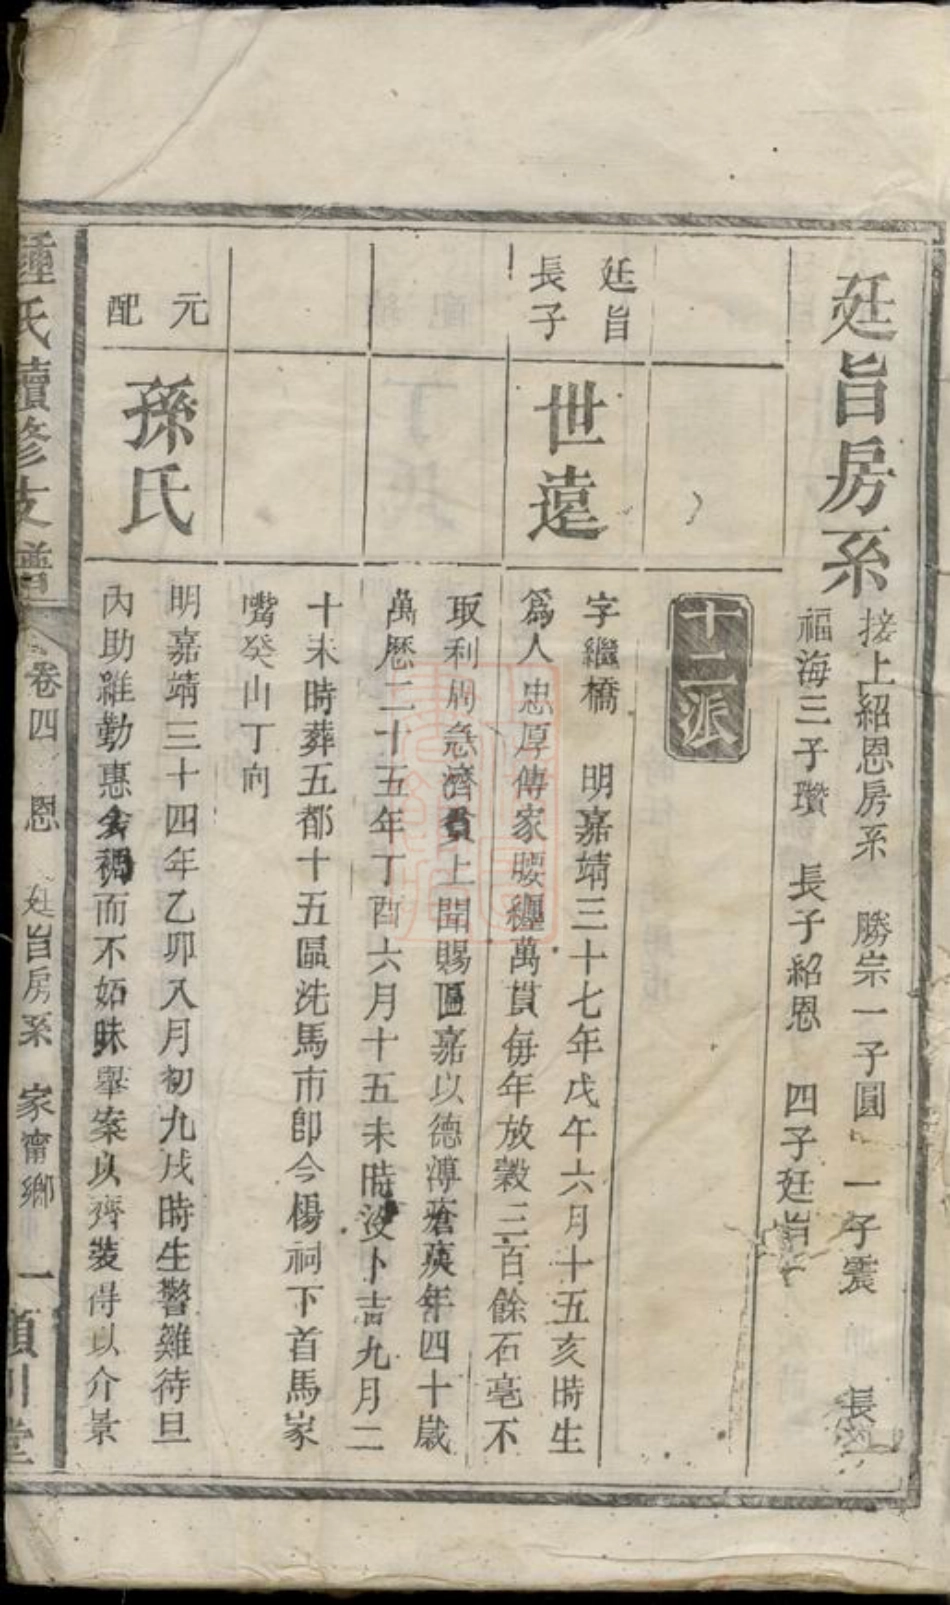 廷旨房系
接上紹恩房系 勝宗一子圓 一子震 長
福海三子瓚 長子紹恩 四子廷旨
十二派
廷旨
長子
世遠
字繼橋 明嘉靖三十七年戊午六月十五亥時生
為人忠厚傳家腰纏萬貫每年放穀三百餘石毫不
取利周急濟貧上聞賜匾嘉以德溥 年四十歲
萬歷二十五年丁酉六月十五未時沒卜吉九月二
十未時葬五都十五區洗馬市即今楊祠下首馬家
嘴癸山丁向
元
配
孫氏
明嘉靖三十四年乙卯八月初九戌時生警雞待旦
內助維勤惠 而不妬昧舉案以齊裝得以介景
鍾氏續修支譜
卷四 恩 廷旨房系 家甯鄉 一 頴川堂